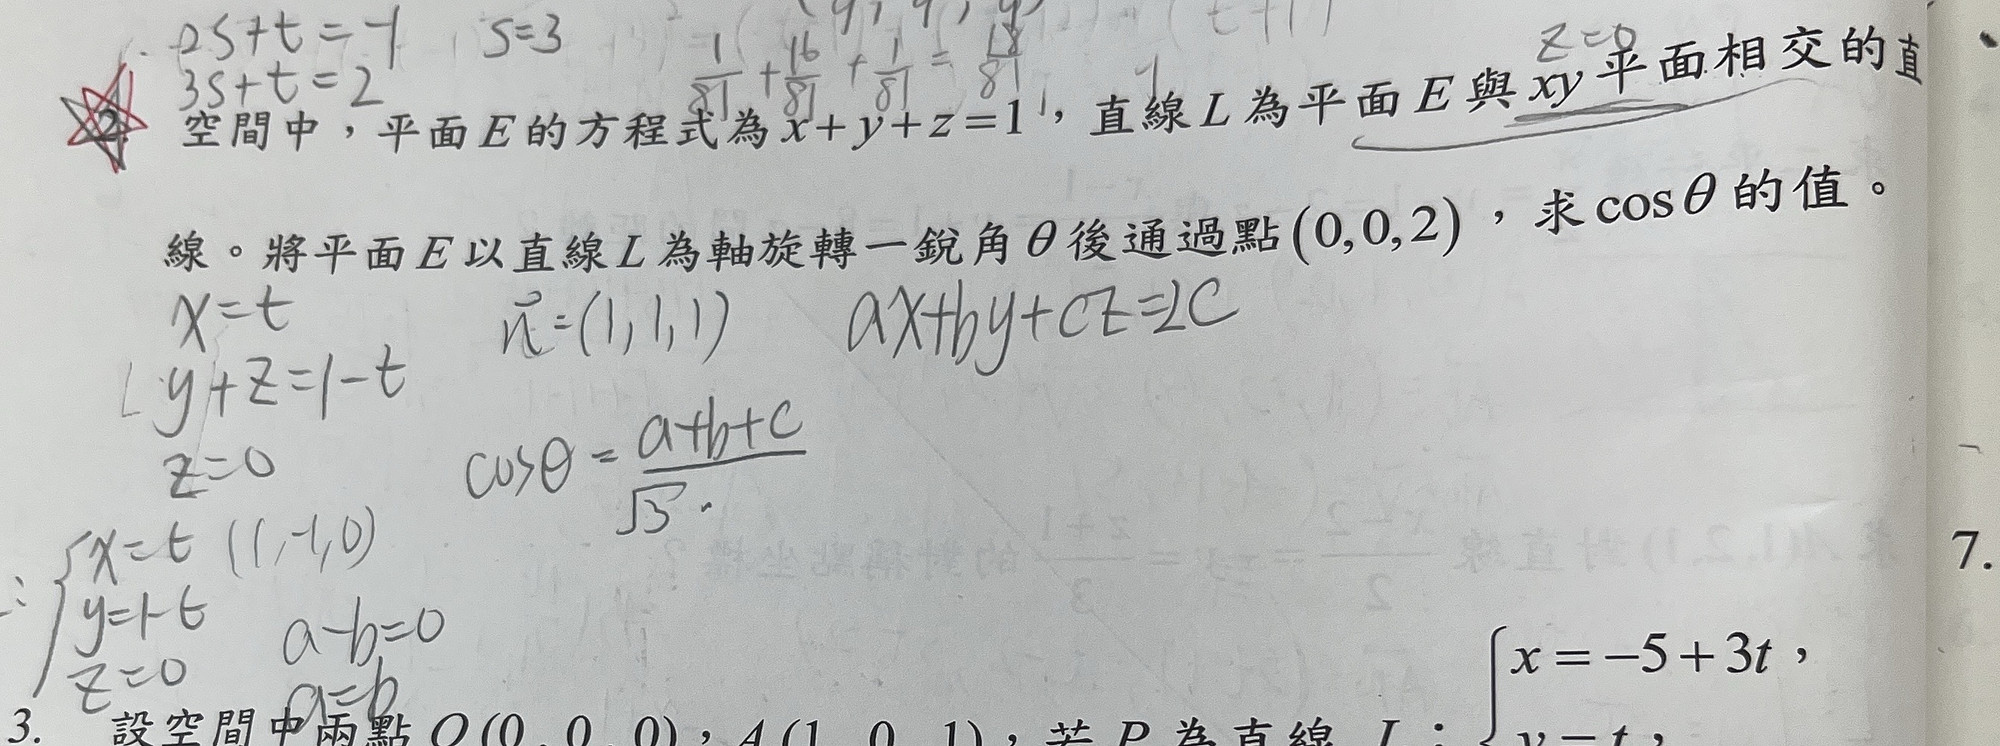 2s+t=-1 s=3
3s+t=2 1/81+16/81+1/81=18/81
z=0
2. 空間中，平面E的方程式為x+y+z=1，直線L為平面E與xy平面相交的直
線。將平面E以直線L為軸旋轉一銳角θ後通過點(0,0,2)，求cosθ的值。
x=t n⃗=(1,1,1) ax+by+cz=2c
L y+z=1-t
z=0 cosθ=a+b+c/√3·
x=t (1,-1,0)
y=1-t a-b=0
z=0 a=b
7.
x=-5+3t，
3. 設空間中兩點O(0,0,0)，A(1,0,1)，若P為直線L：y=t，